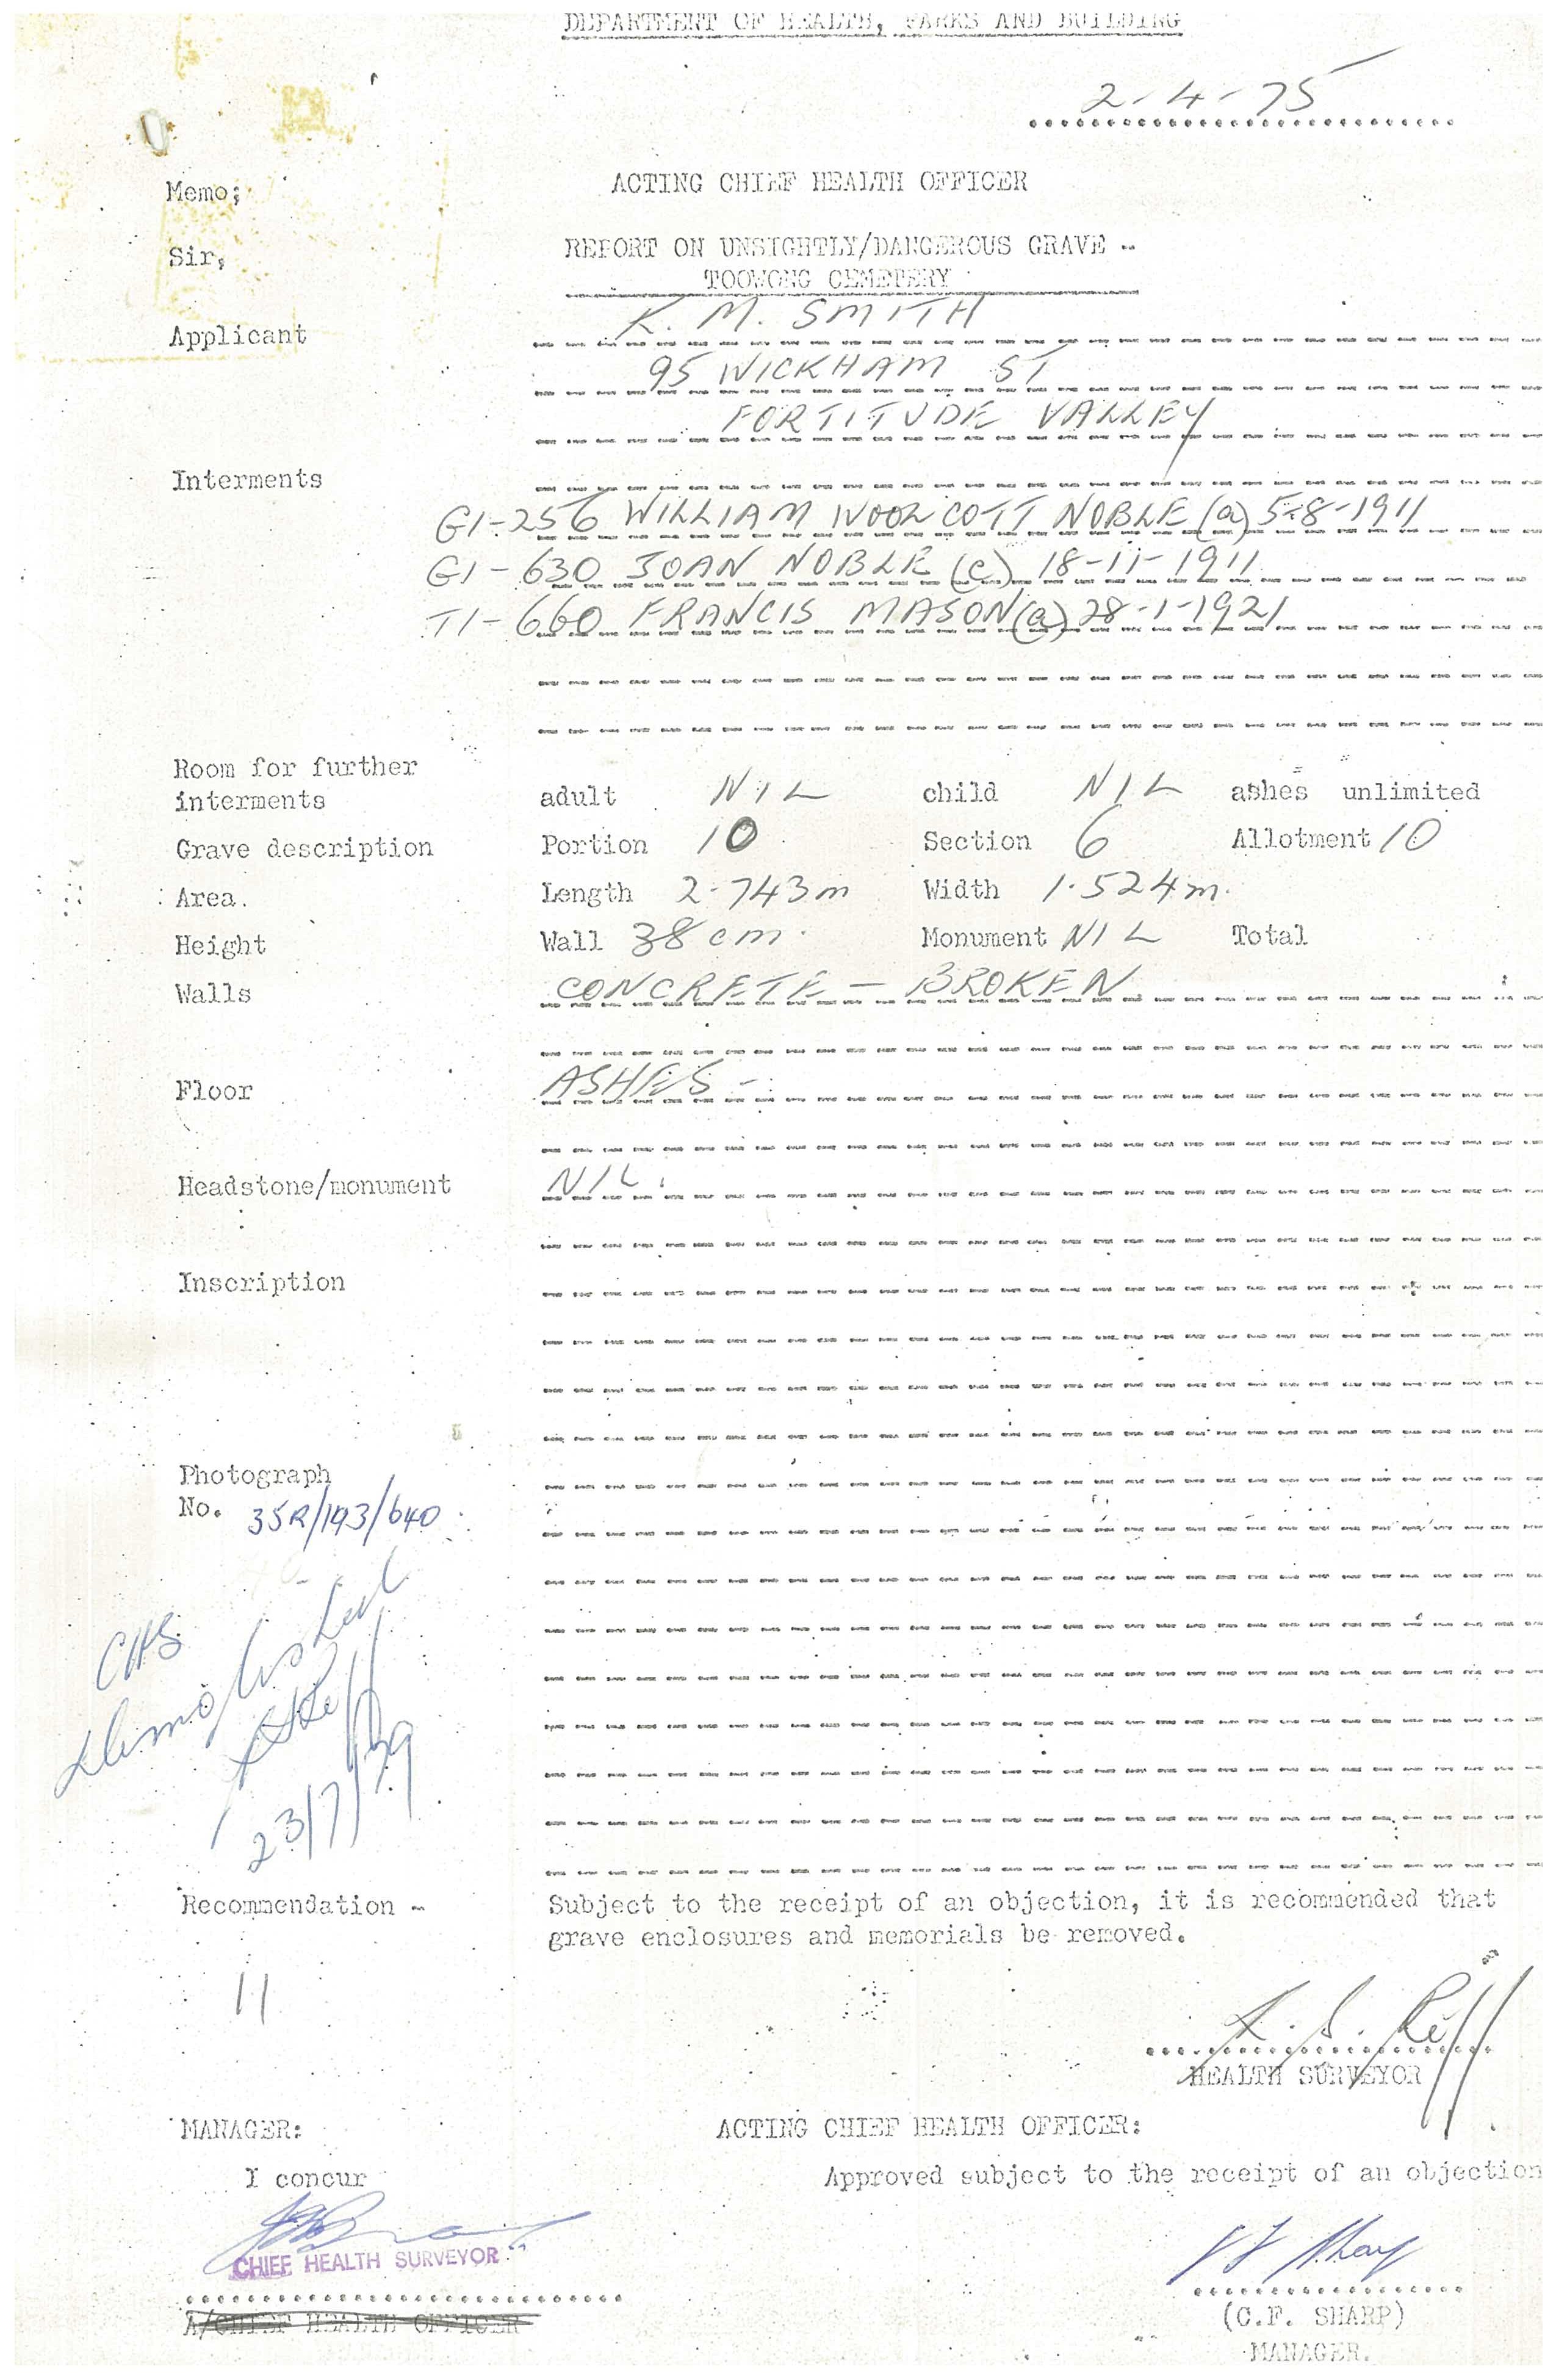 DEPARTMENT OF HEALTH, PARKS AND BUILDING
2-4-75
Memo; ACTING CHIEF HEALTH OFFICER
Sir, REPORT ON UNSIGHTLY/DANGEROUS GRAVE -
TOOWONG CEMETERY
Applicant K. M. SMITH
95 WICKHAM ST
FORTITUDE VALLEY
Interments
G1-256 WILLIAM WOOLCOTT NOBLE (a) 5-8-1911
G1-630 JOAN NOBLE (c) 18-11-1911
T1-660 FRANCIS MASON (a) 28-1-1921
Room for further
interments adult NIL child NIL ashes unlimited
Grave description Portion 10 Section 6 Allotment 10
Area. Length 2.743m Width 1.524m.
Height Wall 38cm. Monument NIL Total
Walls CONCRETE - BROKEN.
Floor ASHES -
Headstone/monument NIL.
Inscription
Photograph
No. 35R/193/640
CHS
Demolished
23/7/79
Recommendation - Subject to the receipt of an objection, it is recommended that
grave enclosures and memorials be removed.
11
HEALTH SURVEYOR
MANAGER: ACTING CHIEF HEALTH OFFICER:
I concur Approved subject to the receipt of an objection
CHIEF HEALTH SURVEYOR
A/CHIEF HEALTH OFFICER
(C.F. SHARP)
MANAGER.